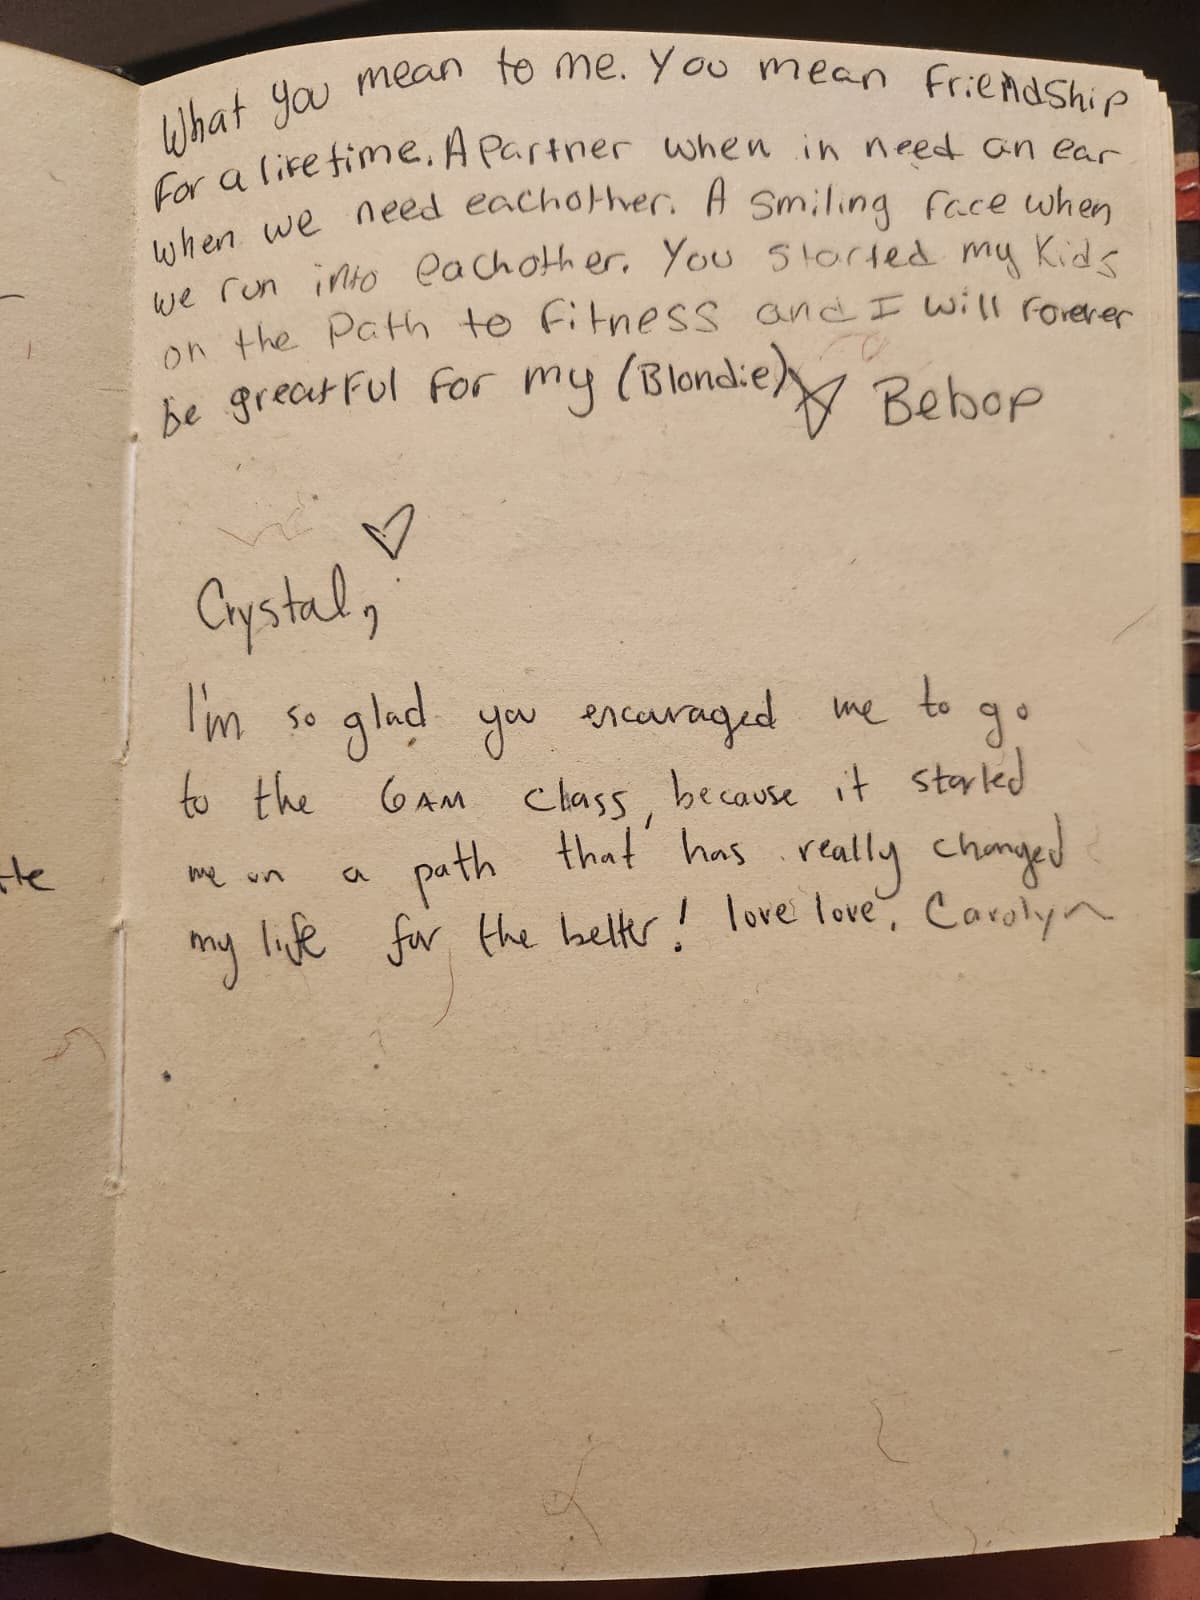 What you mean to me. You mean FriendShip
For a lifetime. A Partner when in need an ear
when we need eachother. A smiling face when
we run into eachother. You started my Kids
on the Path to fitness and I will forever
be greatful for my (Blondie) Bebop
Crystal,
I'm so glad you encouraged me to go
to the 6AM class, because it started
me on a path that has really changed
my life for the better! love love, Carolyn
tte